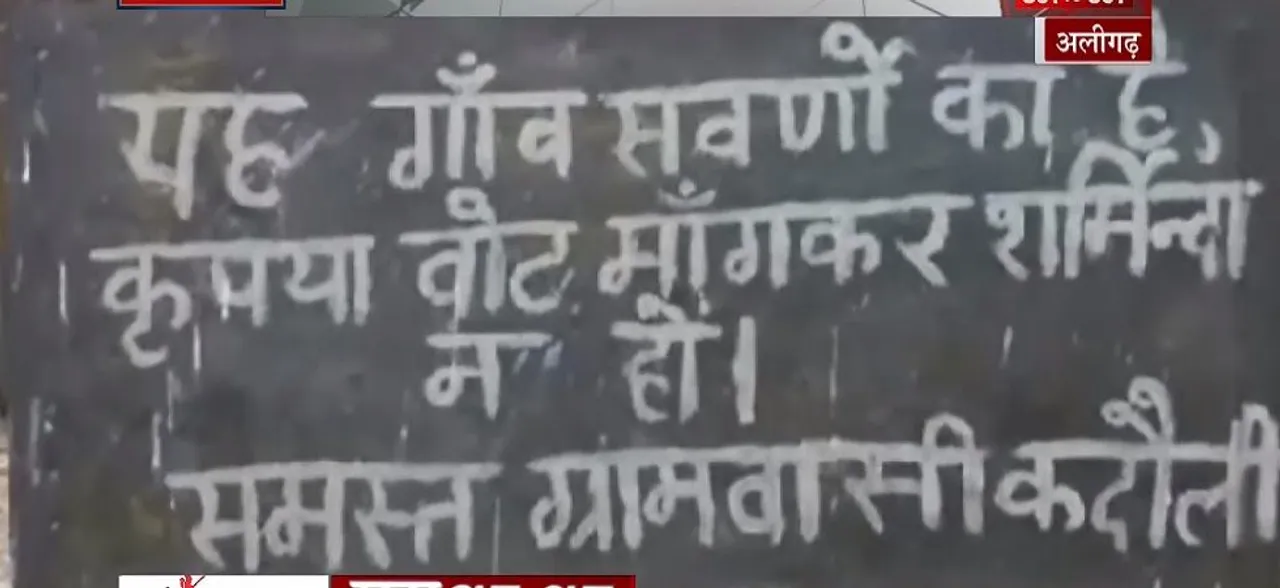 अलीगढ़
यह गाँव सवर्णों का है,
कृपया वोट माँगकर शर्मिन्दा
न हों।
समस्त ग्रामवासी कदौली